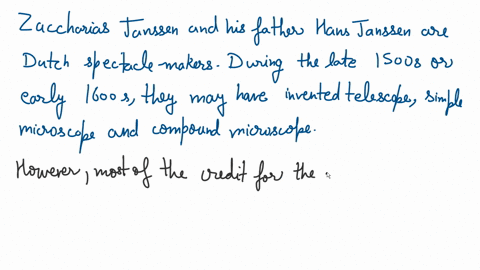 Zaccharias Janssen and his father Hans Janssen are
Dutch spectacle-makers. During the late 1500s or
early 1600s, they may have invented telescope, simple
microscope and compound microscope.
However, most of the credit for the